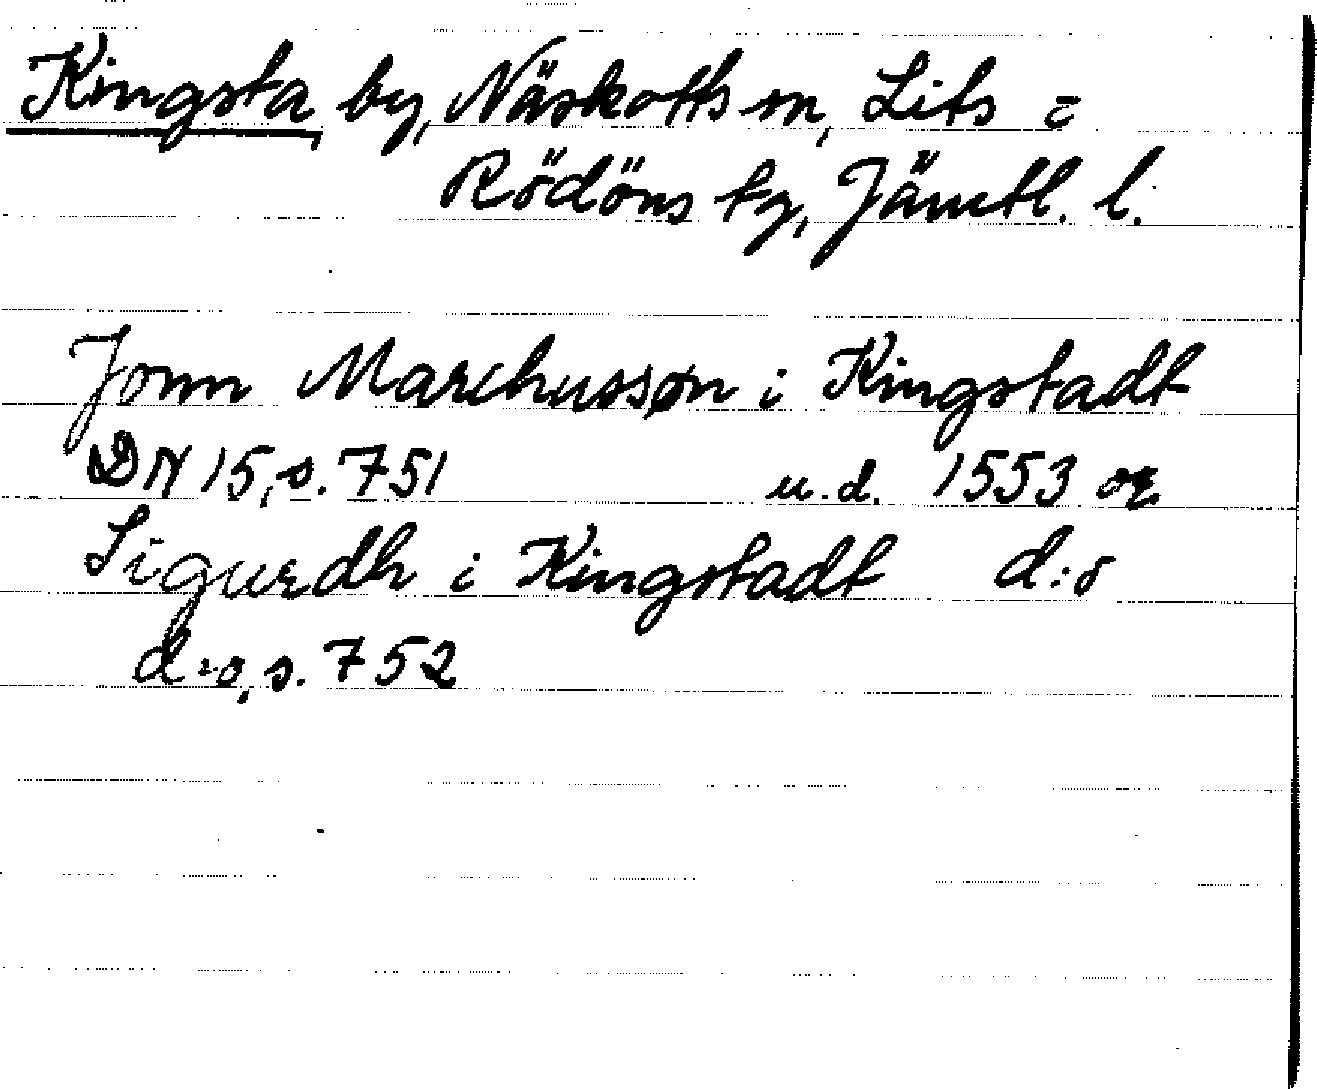 Kingsta, by, Näskotts sn, Lits =
Rödöns tg, Jämtl. l.
Jonn Marchussøn i Kingstadt
DN 15, s. 751 u.d. 1553 or.
Sigurdh i Kingstadt d:o
d:o, s. 752